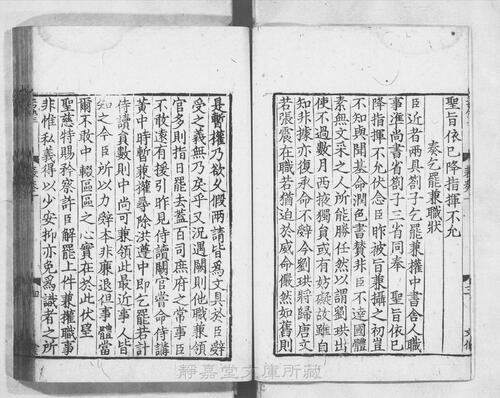 聖旨依已降指揮不允
奏乞罷兼職狀
臣近者兩具劄子乞罷兼權中書舍人職
事準尚書省劄子三省同奉 聖旨依已
降指揮不允伏念臣昨被旨兼攝之初豈
不知與聞基命潤色書贊非臣不達國體
素無文采之人所能勝任然以謂劉珙出
使不過數月西掖獨員或有妨礙故雖自
知非據亦復承命不辭今劉珙將歸唐文
若張震在職若猶迫於威命儼然如舊則
是暫權乃欲久假兩請皆為文具於臣辭
受之義無乃矣乎又況遇闕則他職兼領
官多則指日罷去蓋百司庶府之常事臣
不敢遠有援引昨見侍讀闕官嘗命侍講
黃中時暫兼權尋除洪遵中即乞罷若計
侍讀員數則中尚可兼領此最近事人皆
知之今臣所以力辭本非廉退但事體當
爾不敢中輟區區之心實在於此伏望
聖慈特賜矜察許臣解罷上件兼權職事
非惟私義得以少安抑亦免為識者之所
靜嘉堂文庫所藏